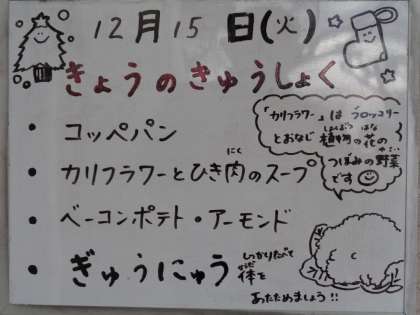 12月15日(火)
きょうのきゅうしょく
「カリフラワー」は ブロッコリー
とおなじ 植物の花の
しょくぶつ はな
つぼみの野菜
やさい
です
・ コッペパン
・ カリフラワーとひき肉のスープ
にく
・ ベーコンポテト・アーモンド
・ ぎゅうにゅう
しっかりたべて
体を
からだ
あたためましょう!!